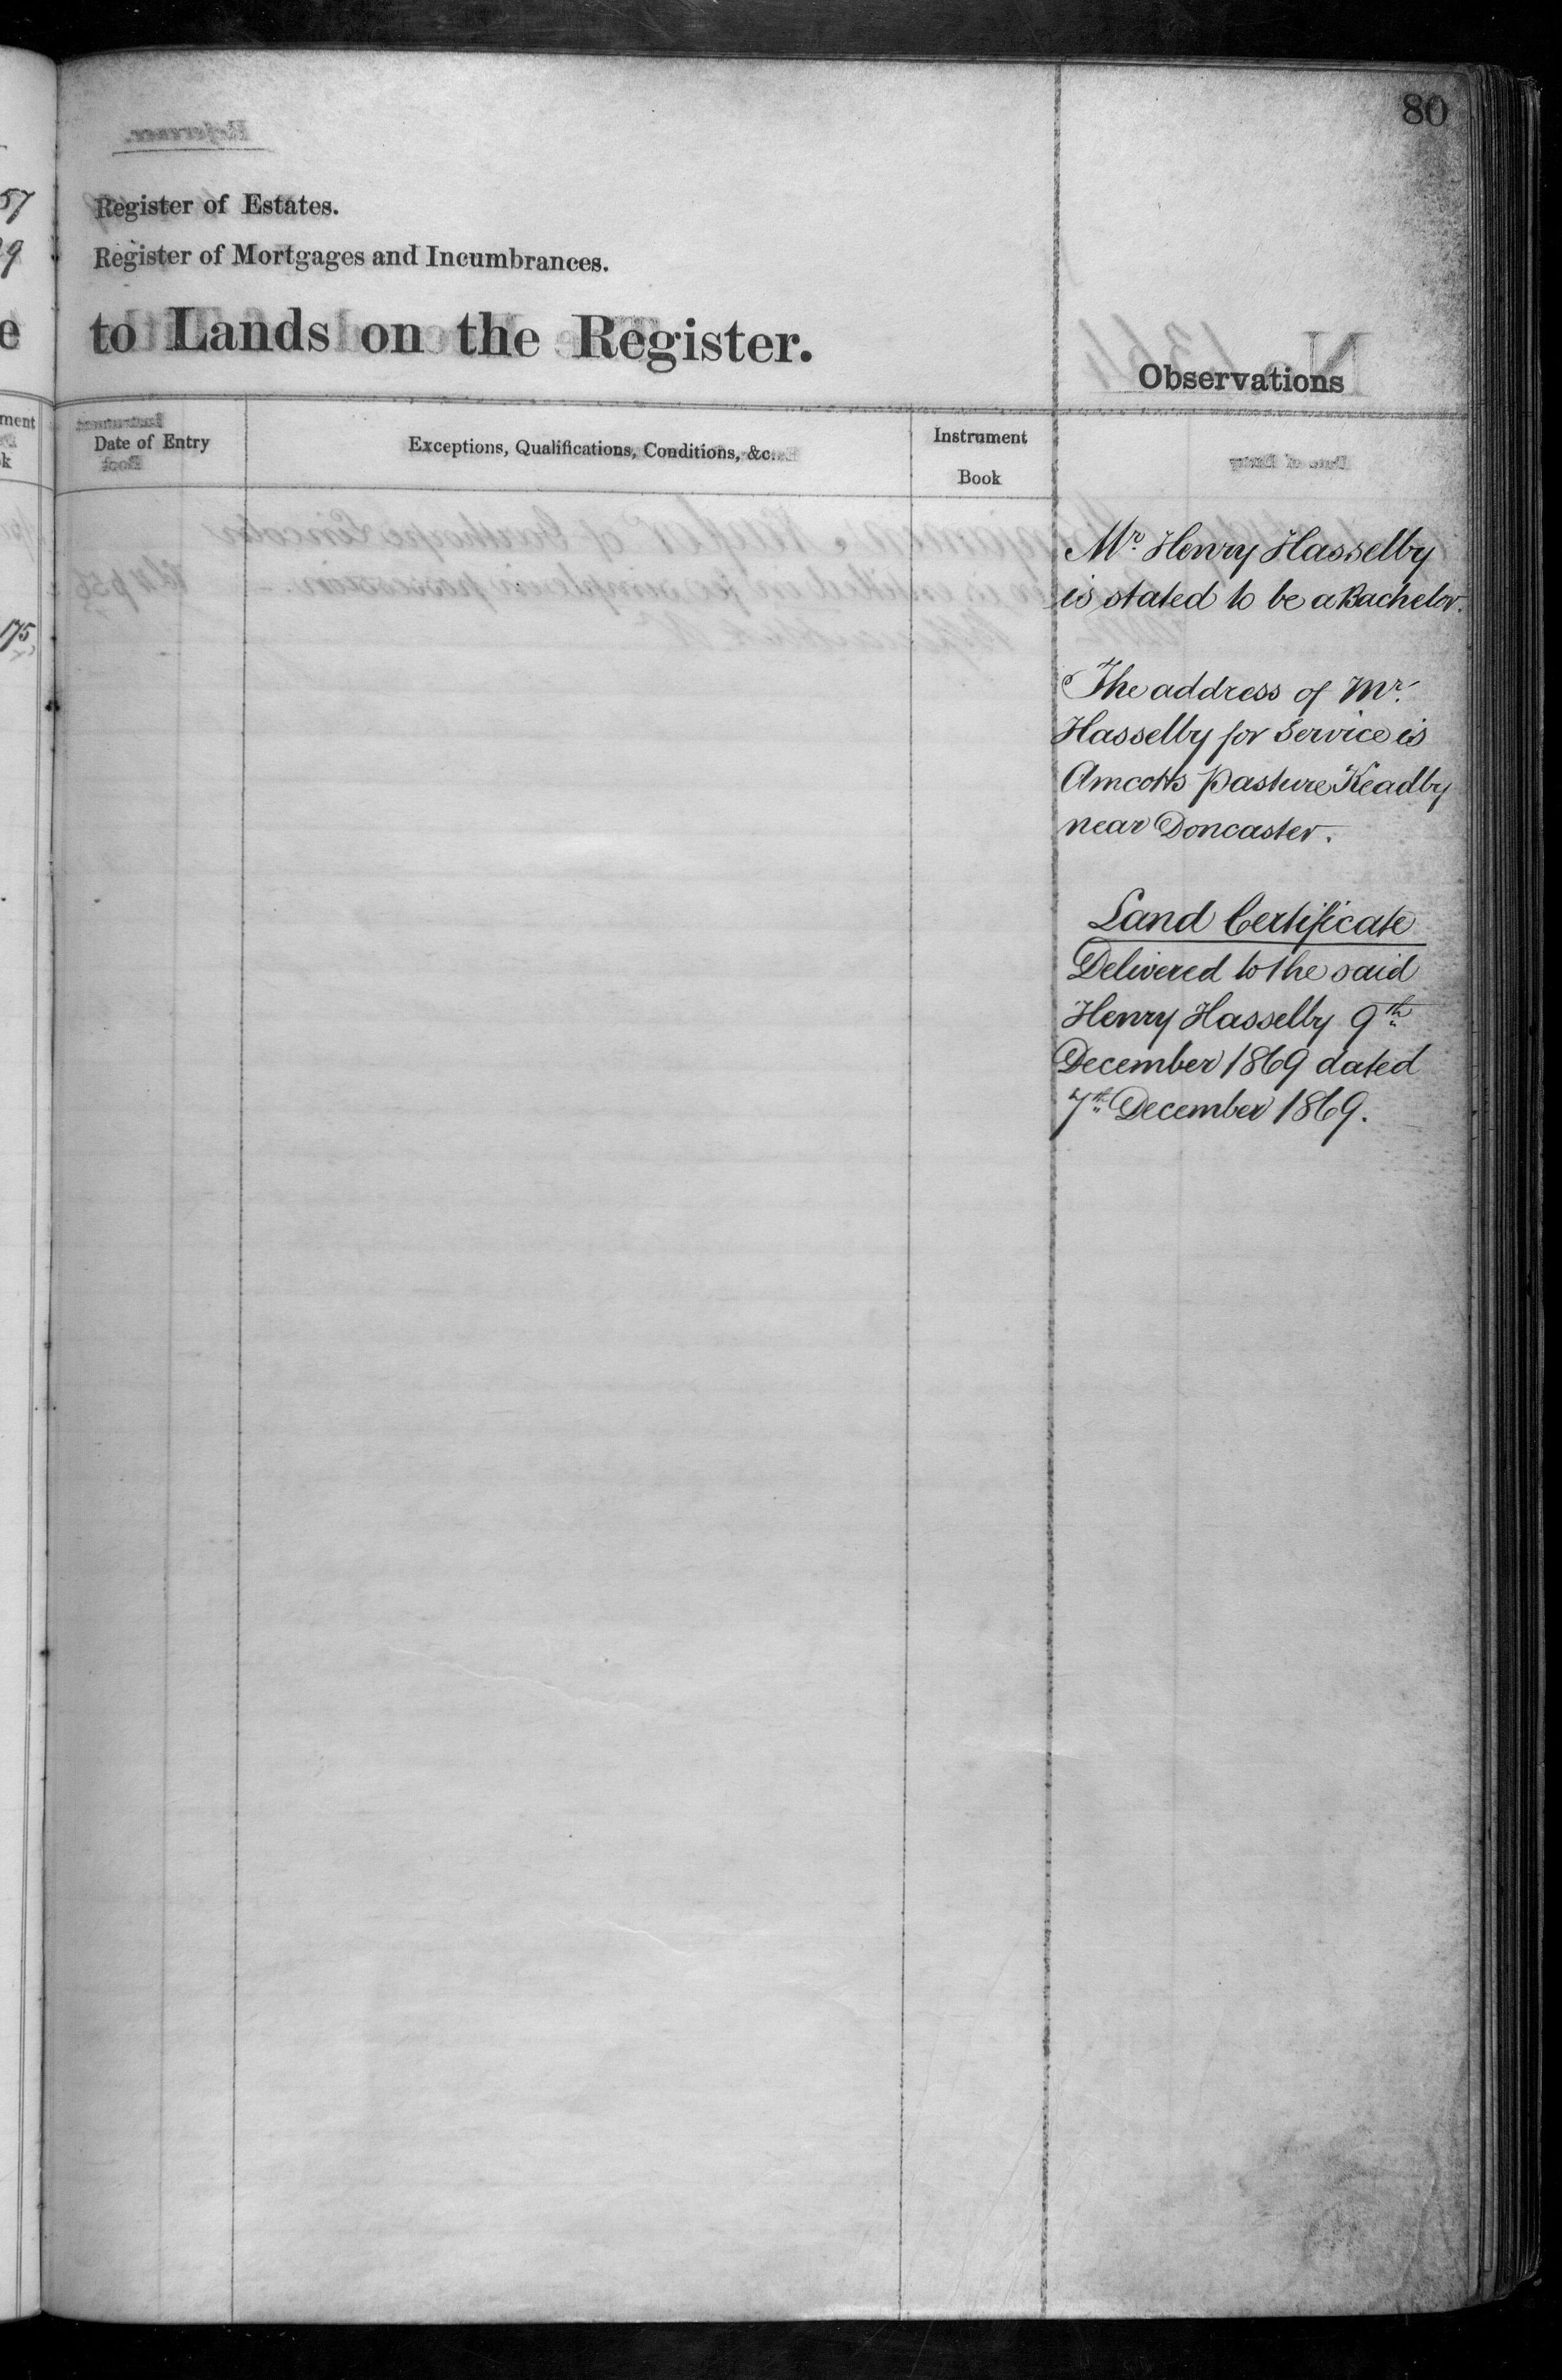 80
Register of Estates.
Register of Mortgages and Incumbrances.
to Lands on the Register.
Observations
Date of Entry
Exceptions, Qualifications, Conditions, &c.
Instrument
Book
Mr. Henry Hasselby
is stated to be a Bachelor.
The address of Mr.
Hasselby for Service is
Amcotts Pasture Keadby
near Doncaster.
Land Certificate
Delivered to the said
Henry Hasselby 9th
December 1869 dated
7th December 1869.
57
9
e
ment
k
175